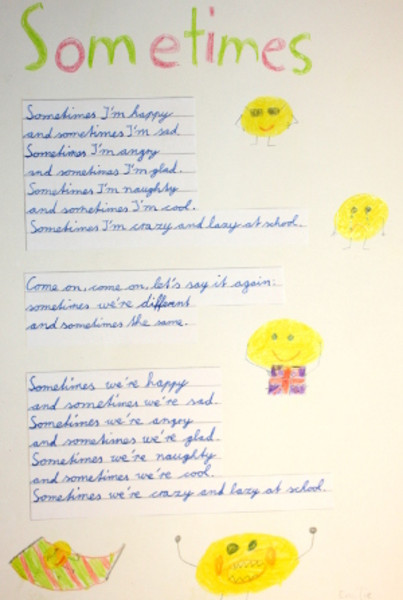 Sometimes
Sometimes I'm happy
and sometimes I'm sad
Sometimes I'm angry
and sometimes I'm glad.
Sometimes I'm naughty
and sometimes I'm cool.
Sometimes I'm crazy and lazy at school.
Come on, come on, let's say it again:
sometimes we're different
and sometimes the same.
Sometimes we're happy
and sometimes we're sad.
Sometimes we're angry
and sometimes we're glad.
Sometimes we're naughty
and sometimes we're cool.
Sometimes we're crazy and lazy at school.